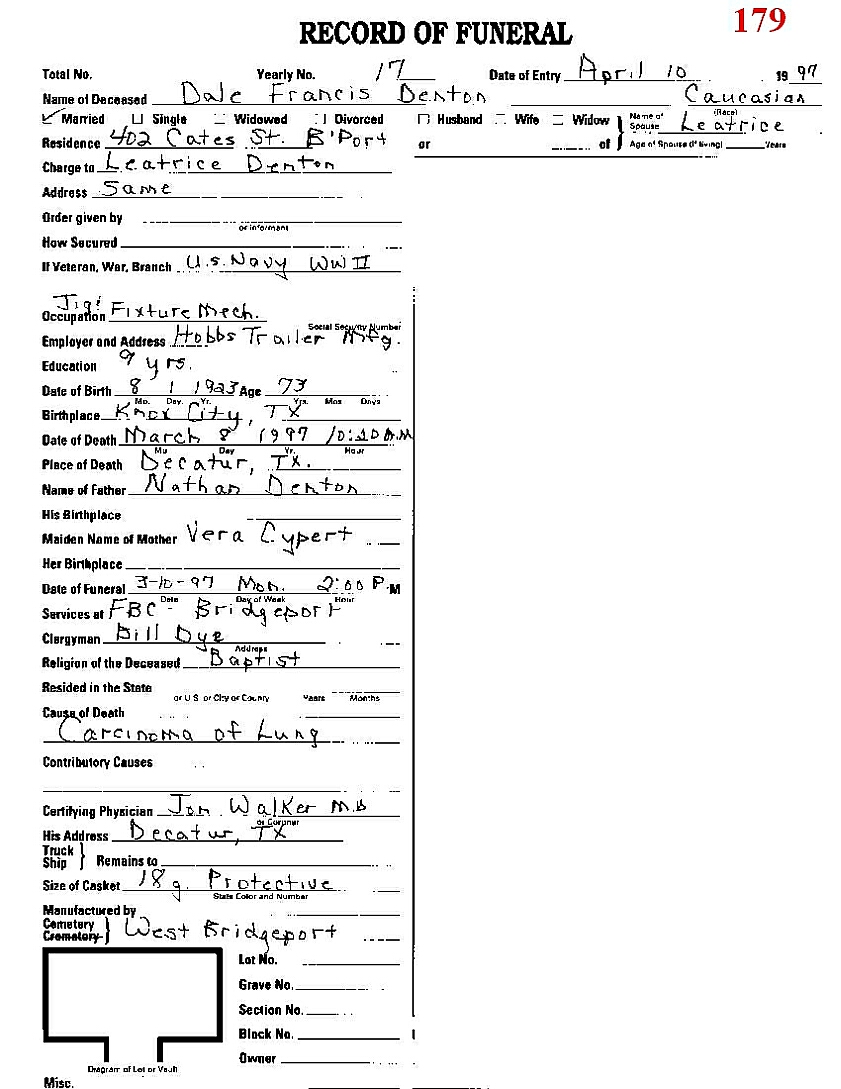 179
RECORD OF FUNERAL
Total No. Yearly No. 17 Date of Entry April 10 1997
Name of Deceased Dale Francis Denton Caucasian
(Race)
✓ Married Single Widowed Divorced Husband Wife Widow } Name of Spouse Leatrice
Residence 402 Cates St. B'Port or of } Age of Spouse (if living) Years
Charge to Leatrice Denton
Address Same
Order given by
or informant
How Secured
If Veteran, War, Branch U.S. Navy WW II
Occupation Jig! Fixture Mech.
Social Security Number
Employer and Address Hobbs Trailer Mfg.
Education 9 yrs.
Date of Birth 8 1 1923 Age 73
Mo. Day. Yr. Yrs. Mos Days
Birthplace Knox City, TX
Date of Death March 8 1997 M
Mo Day Yr. Hour
Place of Death Decatur, TX.
Name of Father Nathan Denton
His Birthplace
Maiden Name of Mother Vera Cypert
Her Birthplace
Date of Funeral 3-10-97 Mon. 2:00 P.M
Date Day of Week Hour
Services at FBC - Bridgeport
Clergyman Bill Dye
Address
Religion of the Deceased Baptist
Resided in the State
or U.S. or City or County Years Months
Cause of Death
Carcinoma of Lung
Contributory Causes
Certifying Physician Jon Walker M.D
or Coroner
His Address Decatur, TX
Truck
Ship } Remains to
Size of Casket 18 g. Protective
State Color and Number
Manufactured by
Cemetery
Crematory } West Bridgeport
Lot No.
Grave No.
Section No.
Block No.
Owner
Diagram of Lot or Vault
Misc.